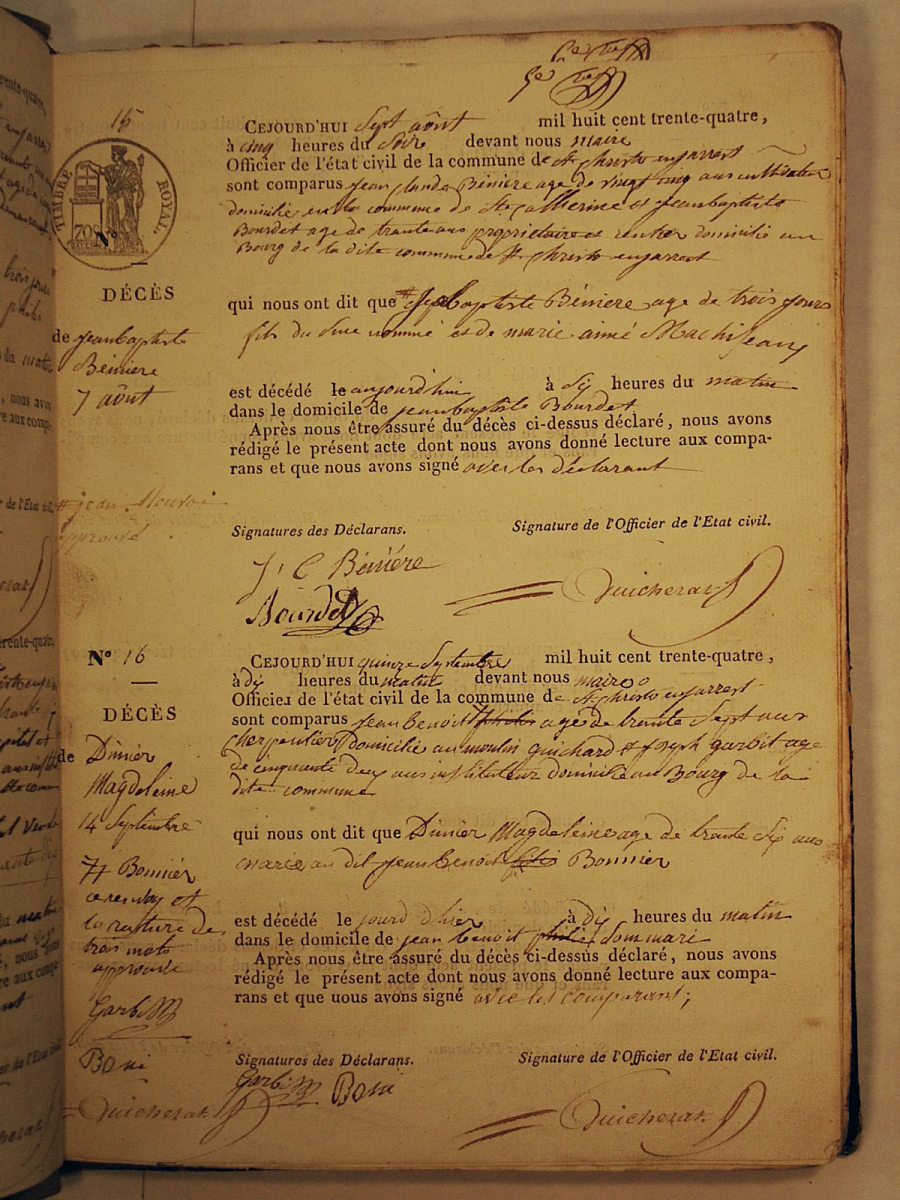 15
TIMBRE ROYAL
70c
N°
CEJOURD'HUI Sept août mil huit cent trente-quatre,
à cinq heures du Soir devant nous maire
Officier de l'état civil de la commune de St christo enjarrest
sont comparus jean claude Bénière age de vingt cinq ans cultivateur
domicilié en la commune de Ste catherine et jeanbaptiste
Bourdet age de trante ans propriétaire et rentier domicilié au
Bourg de la dite commune de St christo enjarrest
DÉCÈS
de jeanbaptiste
Bénière
7 août
qui nous ont dit que baptiste Bénière age de trois jours
fils du sus nommé et de marie aimé
est décédé le aujourd'hui à Six heures du matin
dans le domicile de jeanbaptiste Bourdet
Après nous être assuré du décès ci-dessus déclaré, nous avons
rédigé le présent acte dont nous avons donné lecture aux compa-
rans et que nous avons signé avec les déclarant
# jean
approuvé
Signatures des Déclarans. Signature de l'Officier de l'Etat civil.
J, C Bénière
Bourdet
Guicherar
N° 16
CEJOURD'HUI quinze Septembre mil huit cent trente-quatre,
à dix heures du matin devant nous maire
Officier de l'état civil de la commune de St christo enjarrest
sont comparus jean benoit age de trante Sept ans
charpentier Domicilié au moulin guichard et joseph garbit age
de cinquante deux ans instituteur domicilié au Bourg de la
dite commune
DÉCÈS
de Dimier
Magdeleine
14 Septembre
qui nous ont dit que Dimier Magdeleine age de trante Six ans
mariée au dit jean benoit Bonnier
# Bonnier
et
la rature de
trois mots
approuvée
Garbit
Boni
Guicherar
est décédé le jourd d'hier à dix heures du matin
dans le domicile de jean benoit Son mari
Après nous être assuré du décès ci-dessus déclaré, nous avons
rédigé le présent acte dont nous avons donné lecture aux compa-
rans et que uous avons signé avec les comparant;
Signatures des Déclarans. Signature de l'Officier de l'Etat civil.
Garbit Boni
Guicherar